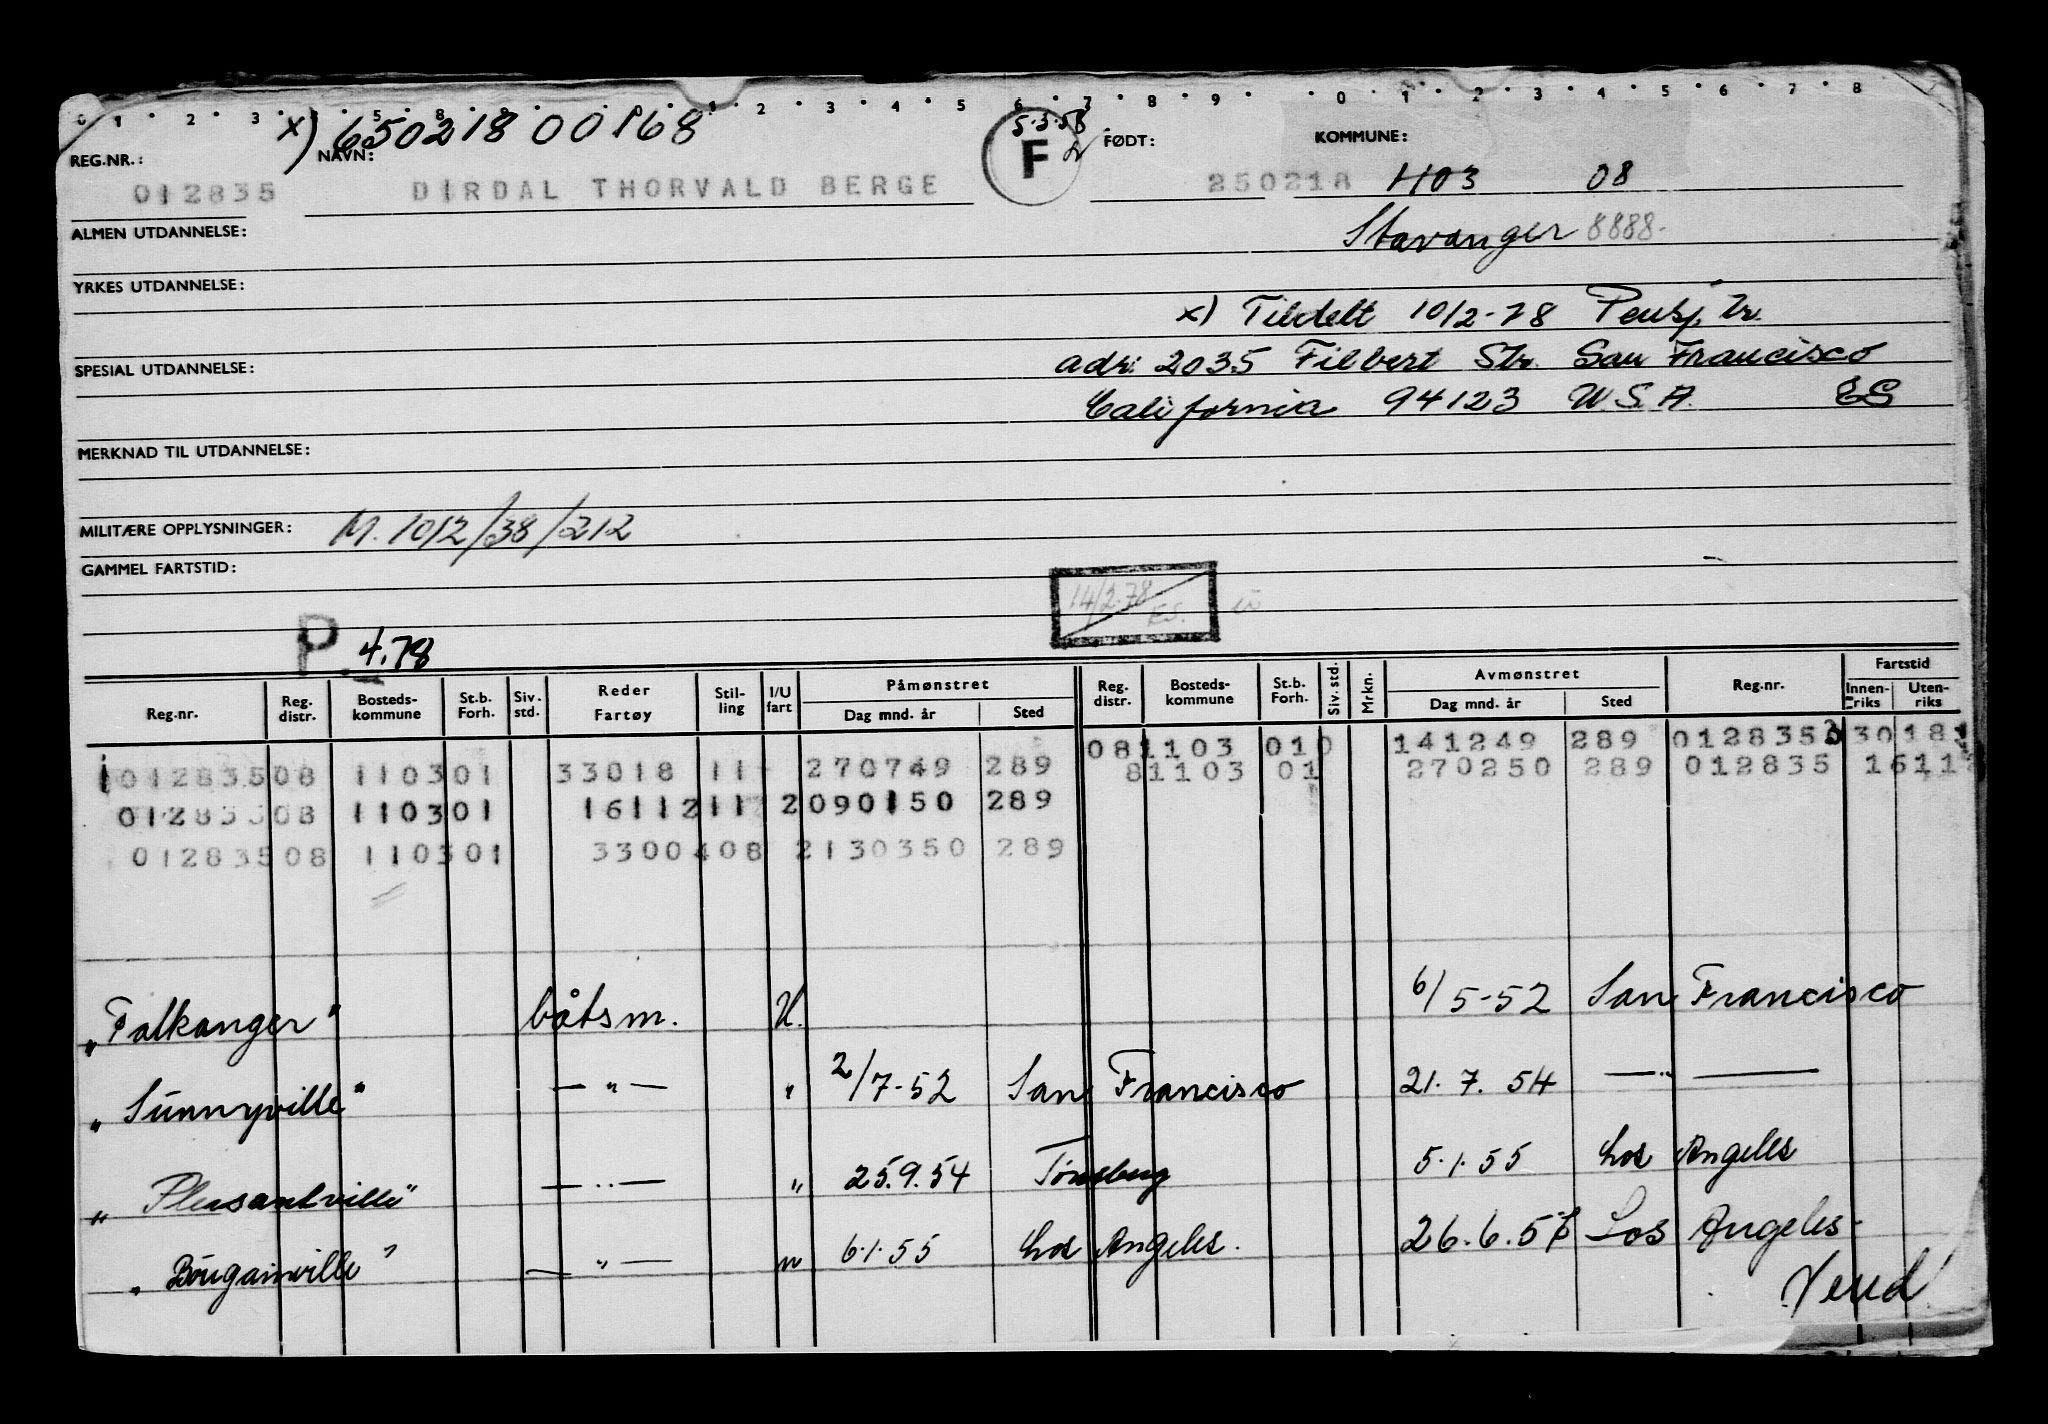 0 1 2 3 5 8 9 1 2 3 4 5 6 7 8 9 0 1 2 3 4 5 6 7 8
x) 650218 00168 5.3.58
REG.NR.: NAVN: F FØDT: KOMMUNE:
012835 DIRDAL THORVALD BERGE 250218 1103 08
ALMEN UTDANNELSE: Stavanger 8888.
YRKES UTDANNELSE:
x) Tildelt 10/2-78 Pensj.tr.
SPESIAL UTDANNELSE: adr: 2035 Filbert Str. San Francisco
California 94123 U.S.A. ES
MERKNAD TIL UTDANNELSE:
MILITÆRE OPPLYSNINGER: M. 1012/38/212
GAMMEL FARTSTID:
14/2-78 ES.
P 4.78
Reg.nr. Reg. distr. Bosteds-kommune St.b. Forh. Siv. std. Reder Fartøy Stil-ling I/U fart Påmønstret Dag mnd. år Sted Reg. distr. Bosteds-kommune St.b. Forh. Siv. std. Mrkn. Avmønstret Dag mnd. år Sted Reg.nr. Fartstid Innen-riks Uten-riks
081103 010 141249 289 0128353 30181
01283508 110301 33018 11 270749 289 81103 01 270250 289 012835 16112
01283508 110301 16112 11 2 090150 289
01283508 110301 33004 08 2 130350 289
"Falkanger" båtsm. U. 6/5-52 San Francisco
"Sunnyville" — " — " 2/7-52 San Francisco 21.7.54 — " —
"Pleasantville" — " — " 25.9.54 Tønsberg 5.1.55 Los Angeles
"Bougainville" — " — " 6.1.55 Los Angeles. 26.6.56 Los Angeles
Vend